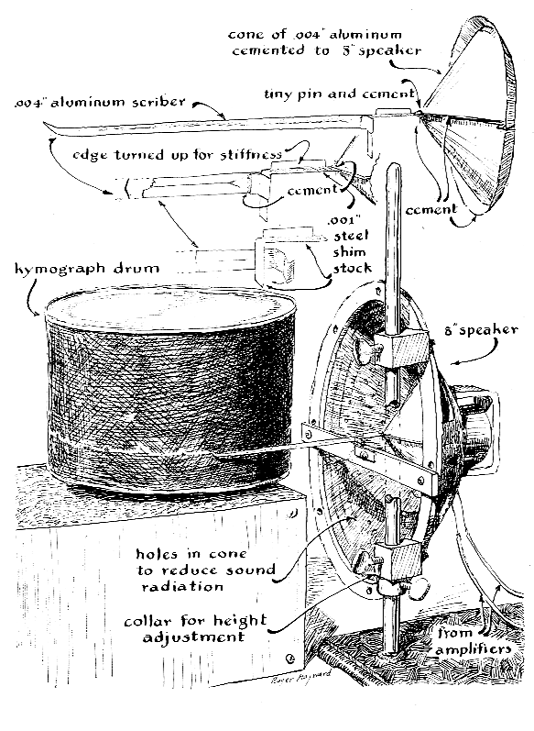 cone of .004" aluminum
cemented to 8" speaker
tiny pin and cement
.004" aluminum scriber
edge turned up for stiffness
cement
cement
.001"
steel
shim
stock
kymograph drum
8" speaker
holes in cone
to reduce sound
radiation
collar for height
adjustment
from
amplifiers
Hayward